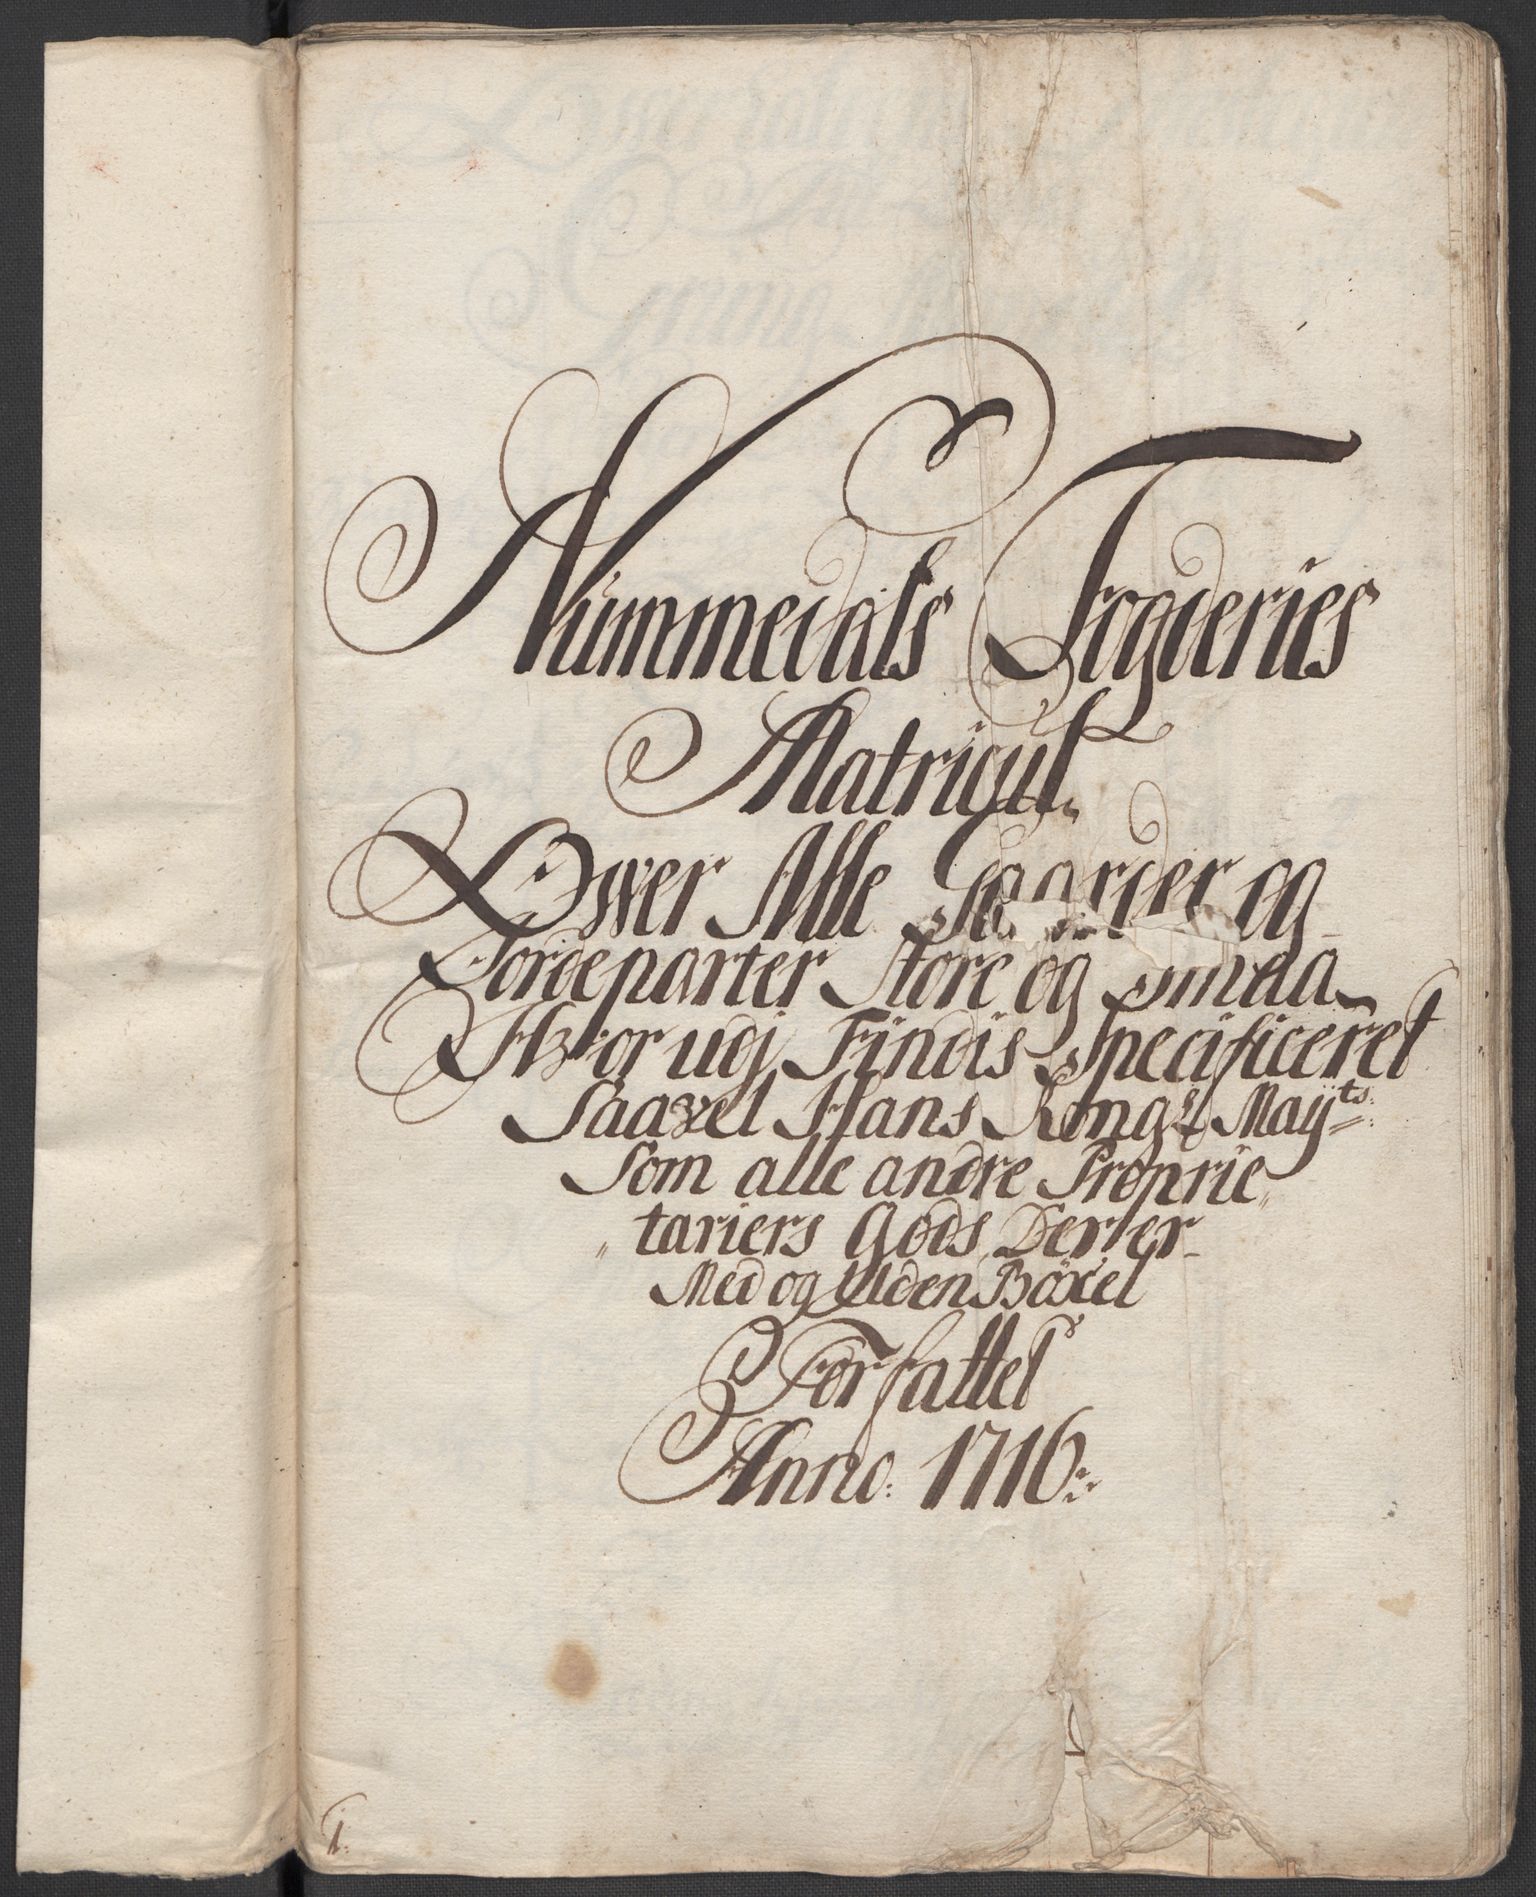 Nummedals Fogderies
Matricul.
Ower Alle Gaarder og
Jordeparter Store og Smaa
Hvor udj Findis Specificeret
Saavel Hans Kong: Mayts:
Som alle andre Proprie„
„tariers Gods Derer
Med og Uden Böxel
Forfattet
Anno: 1716:
1.